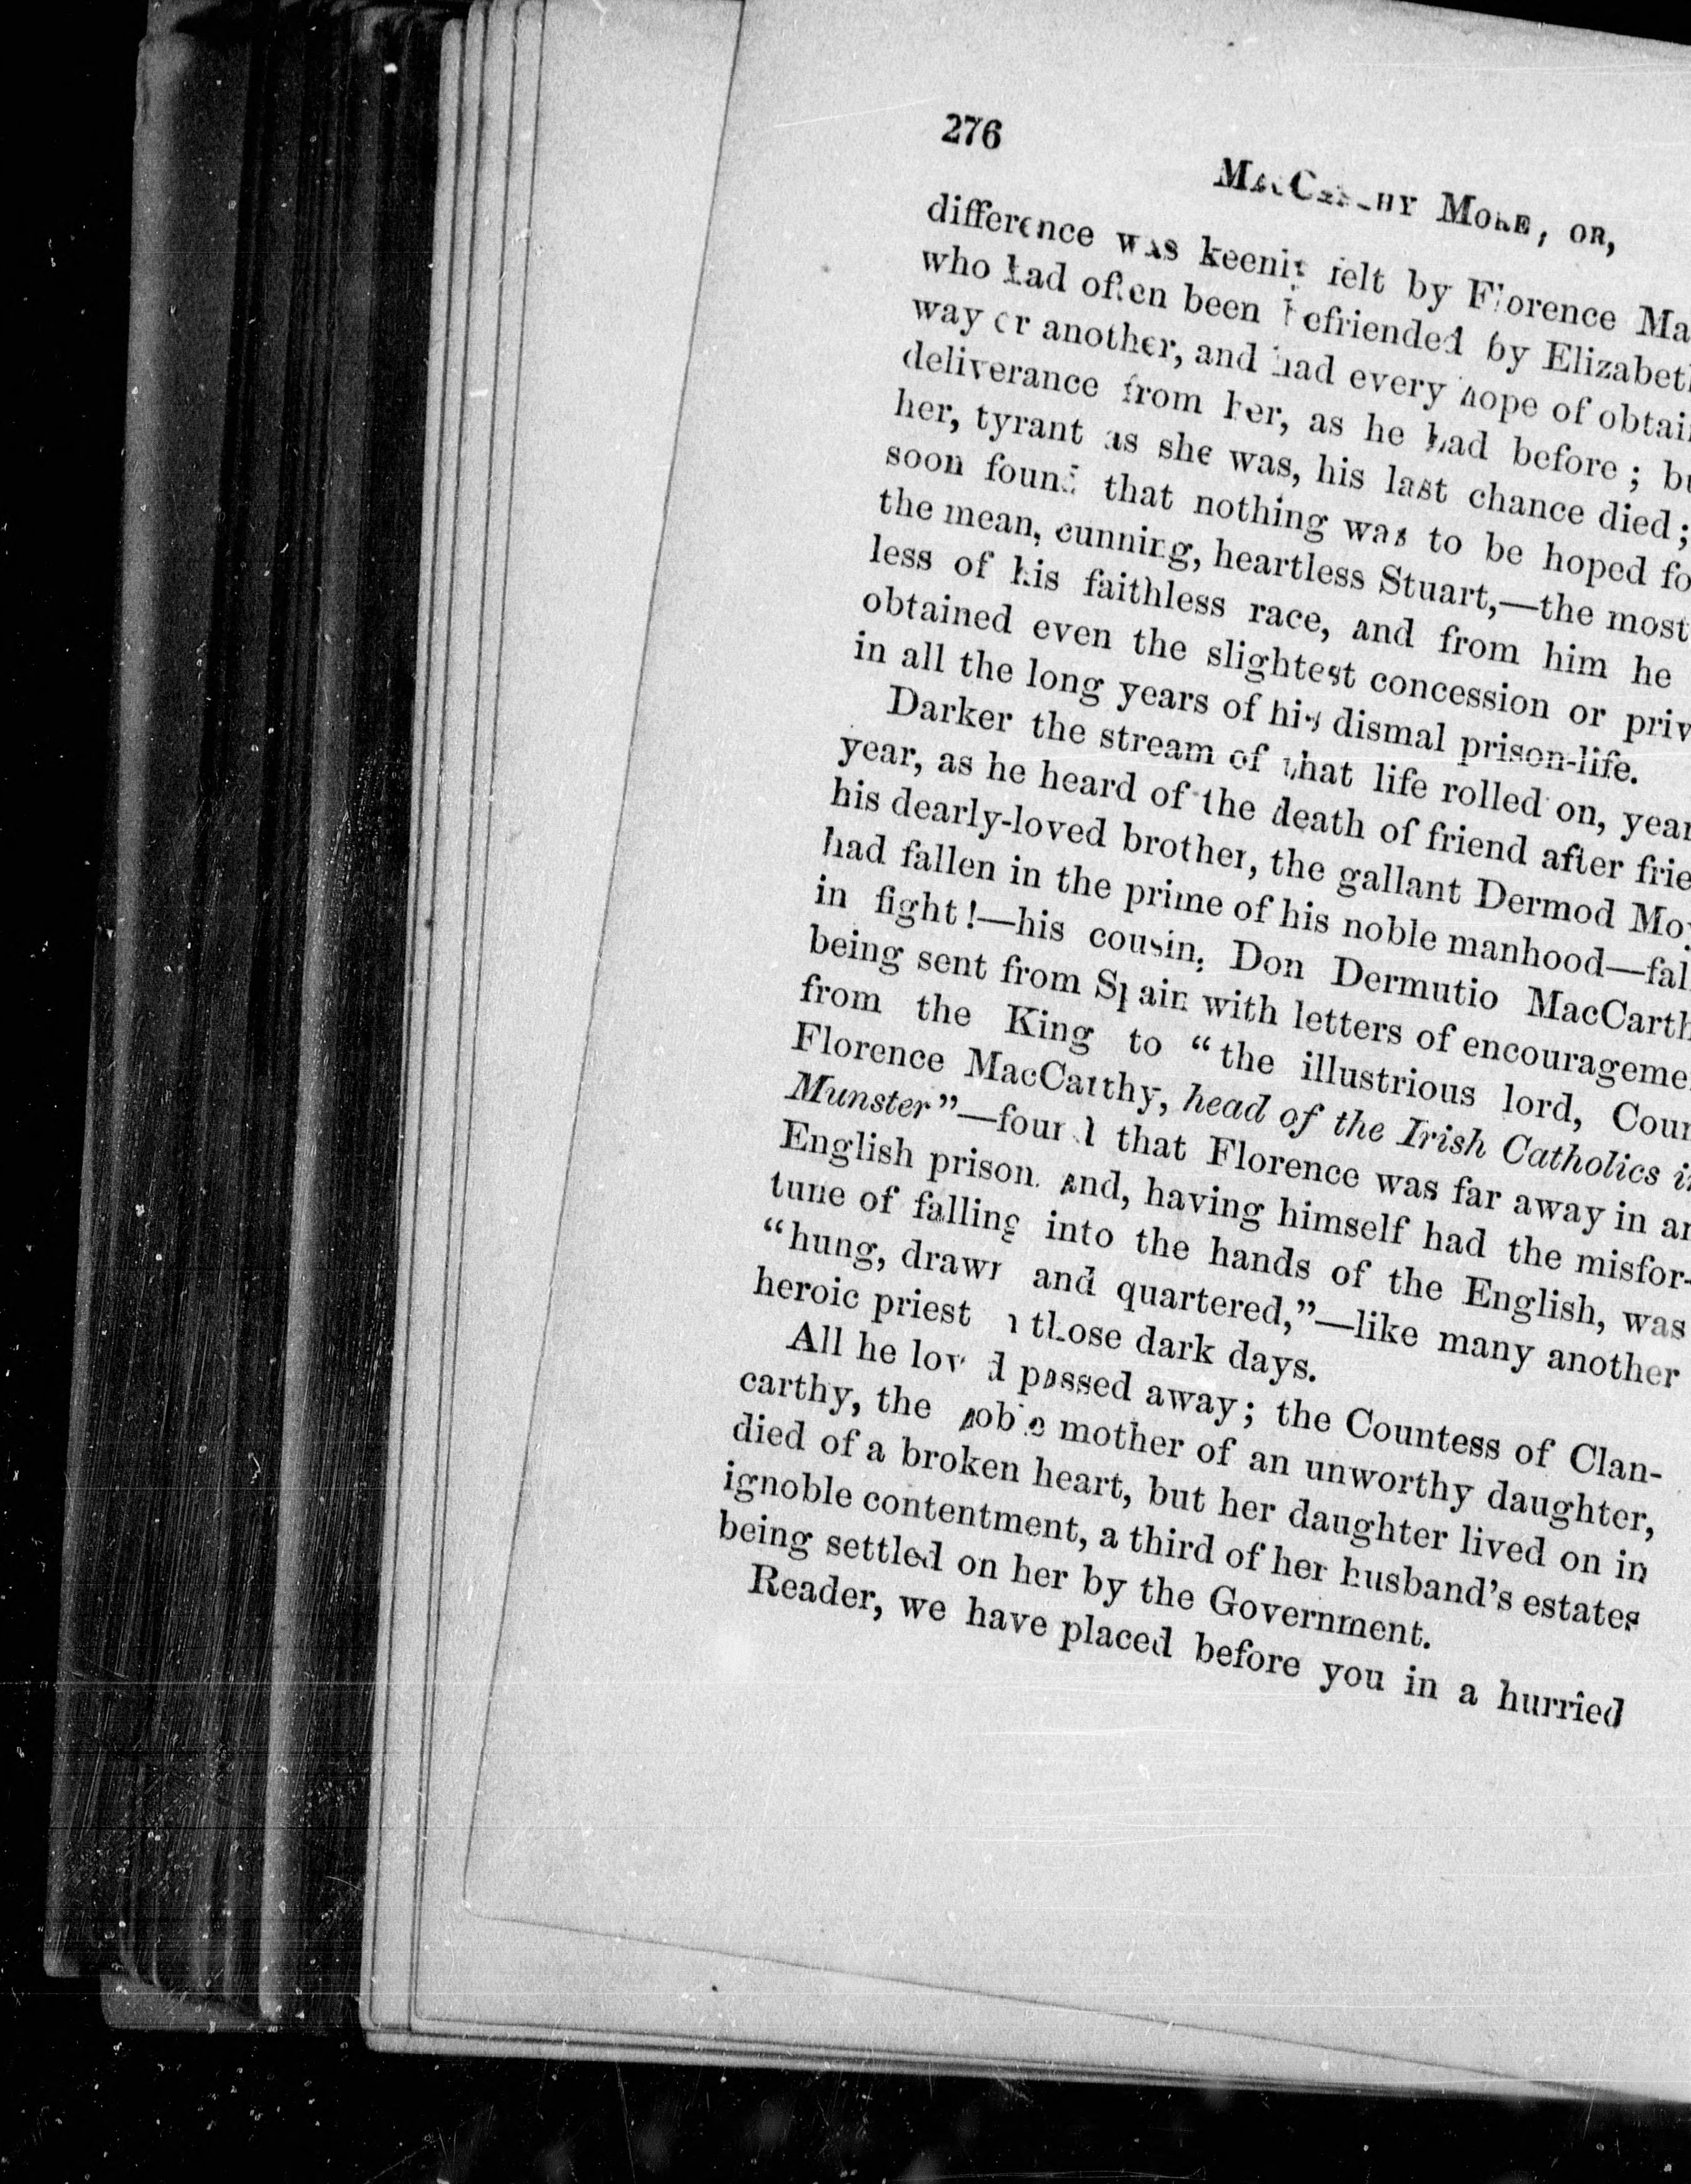 276
MacCarthy More, or,
difference was keenly felt by Florence Ma
who had often been befriended by Elizabet
way or another, and had every hope of obtai
deliverance from her, as he had before; bu
her, tyrant as she was, his last chance died;
soon found that nothing was to be hoped fo
the mean, cunning, heartless Stuart,—the most
less of his faithless race, and from him he
obtained even the slightest concession or priv
in all the long years of his dismal prison-life.
Darker the stream of that life rolled on, year
year, as he heard of the death of friend after frie
his dearly-loved brother, the gallant Dermod Mo
had fallen in the prime of his noble manhood—fal
in fight!—his cousin, Don Dermutio MacCarth
being sent from Spain with letters of encourageme
from the King to "the illustrious lord, Coun
Florence MacCarthy, head of the Irish Catholics i
Munster"—found that Florence was far away in an
English prison and, having himself had the misfor-
tune of falling into the hands of the English, was
"hung, drawn and quartered,"—like many another
heroic priest those dark days.
All he loved passed away; the Countess of Clan-
carthy, the noble mother of an unworthy daughter,
died of a broken heart, but her daughter lived on in
ignoble contentment, a third of her husband's estates
being settled on her by the Government.
Reader, we have placed before you in a hurried